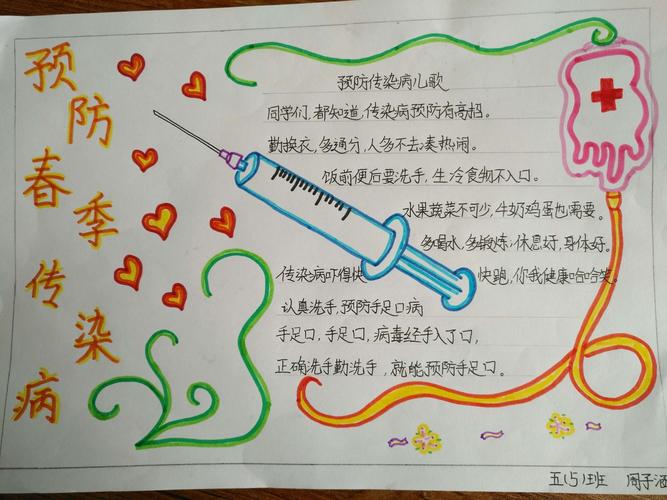 预防春季传染病
预防传染病儿歌
同学们，都知道，传染病预防有高招。
勤换衣，多通分，人多不去凑热闹。
饭前便后要洗手，生冷食物不入口。
水果蔬菜不可少，牛奶鸡蛋也需要。
多喝水，多锻炼，休息好，身体好。
传染病吓得快快跑，你我健康哈哈笑。
认真洗手，预防手足口病
手足口，手足口，病毒经手入了口，
正确洗手勤洗手，就能预防手足口。
五（5）班 周子涵